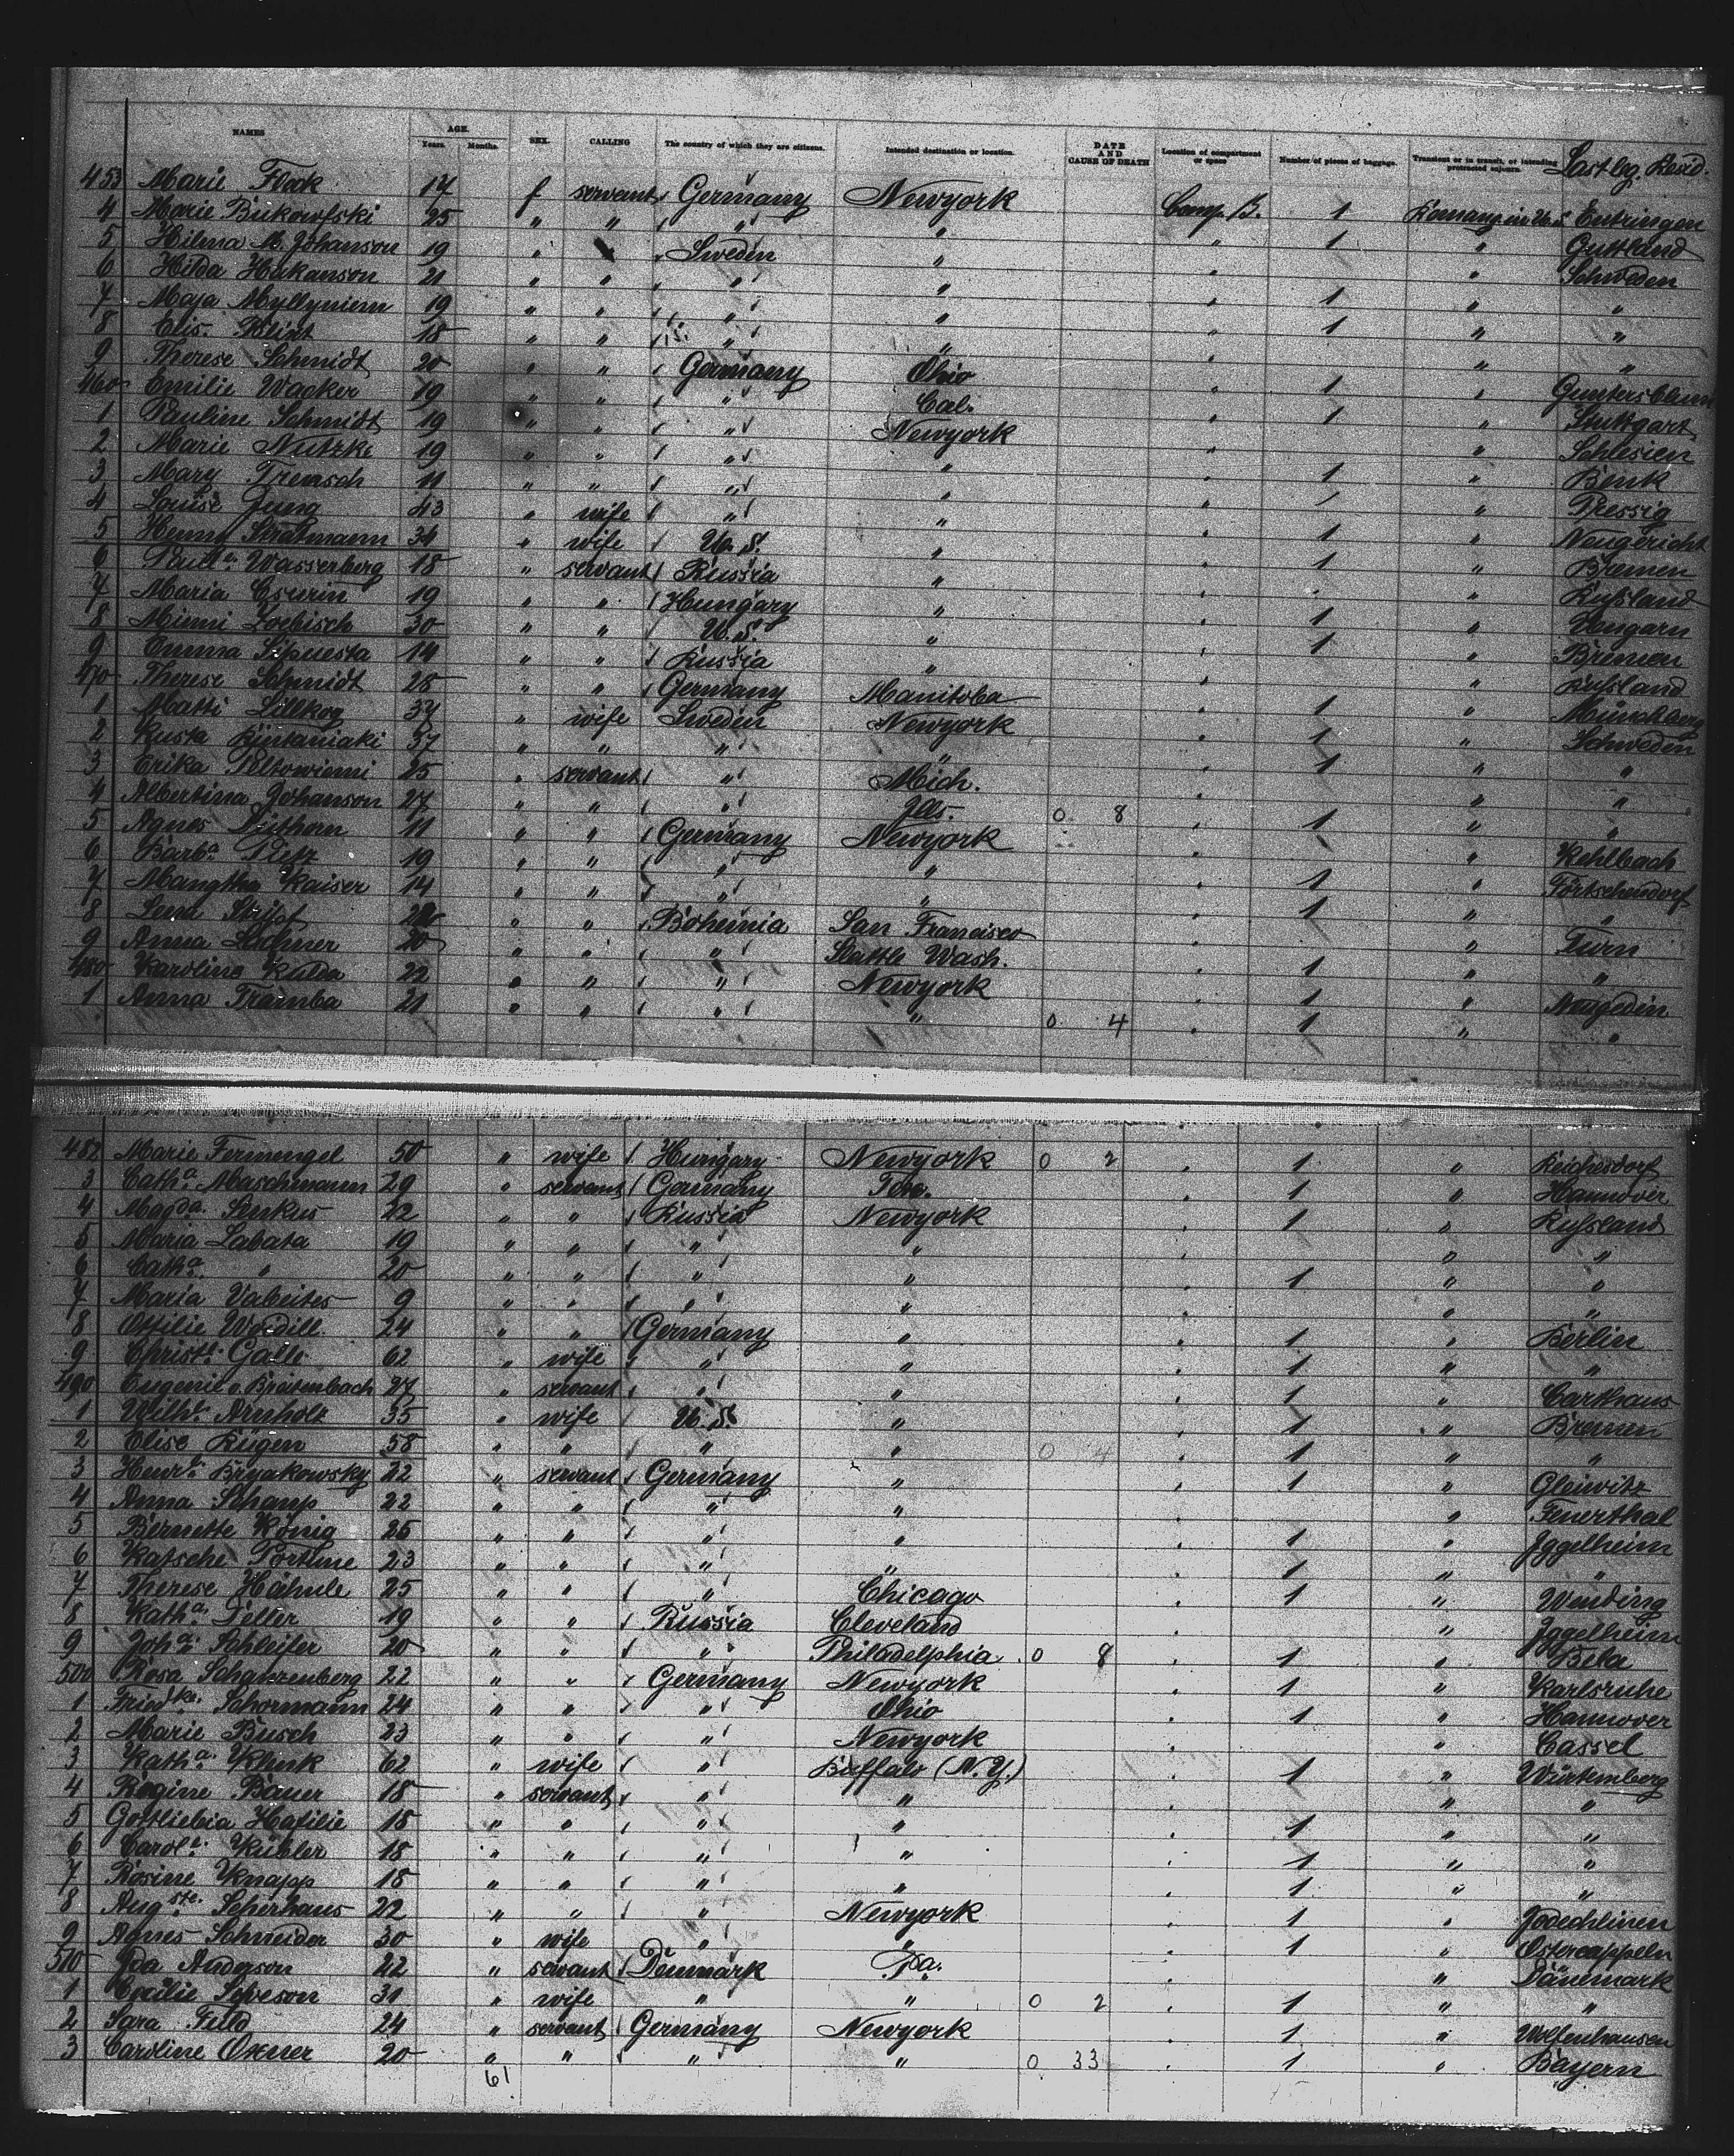 NAMES AGE. Years. Months. SEX. CALLING The country of which they are citizens. Intended destination or location. DATE AND CAUSE OF DEATH Location of compartment or space Number of pieces of baggage. Transient or in transit, or intending protracted sojourn. Last leg. Resid.
453 Marie Fleck 17 f servant Germany Newyork Comp. B. 1 Entringen
4 Marie Bukowfski 25 " " " " " 1 " Guttland
5 Hilma M. Johanson 19 " Sweden " " " Schweden
6 Hilda Hakanson 21 " " " " " 1 " "
7 Maja Myllyniem 19 " " " " " 1 " "
8 Elis. 18 " " " " " " "
9 Therese Schmidt 20 " " Germany Ohio " 1 " Guntersblum
460 Emilie Wacker 19 " " " Cal. " 1 " Stuttgart
1 Pauline Schmidt 19 " " " Newyork " " Schlesien
2 Marie Nutzke 19 " " " " " 1 " Benk
3 Mary Trensch 11 " " " " " " Pressig
4 Louise Jung 43 " wife " " " 1 " Neugericht
5 Henny Stratmann 34 " wife U. S. " " 1 " Bremen
6 Paul.a Wasserberg 18 " servant Russia " " " Rufsland
7 Maria Csurin 19 " " Hungary " " 1 " Ungarn
8 Mimi Zoebisch 30 " " U. S. " " 1 " Bremen
9 Emma 14 " " Russia " " " Rufsland
470 Therese Schmidt 28 " " Germany Manitoba " 1 " Münchberg
1 Matti Lillkog 37 " wife Sweden Newyork " 1 " Schweden
2 Kusta 37 " " " " " 1 " "
3 Erika 25 " servant " Mich. " " "
4 Albertina Johanson 27 " " " Ills. 0 8 " 1 " "
5 Agnes 11 " " Germany Newyork " " Kehlbach
6 Barb.a Pietz 19 " " " " " 1 " Förtschendorf
7 Kaiser 14 " " " " " 1 " "
8 Lena " " Bohemia San Francisco " " Turn
9 Anna Lochner 20 " " " Seattle Wash. " 1 " "
480 Karoline Kulda 22 " " " Newyork " 1 " Neugedin
1 Anna Tramba 21 " " " " 0 4 " 1 " "
482 Marie Fermengel 50 " wife Hungary Newyork 0 2 " 1 " Reichesdorf
3 Cath.a Maschmann 29 " servant Germany Tex. " 1 " Hannover
4 Magda. Senkus 22 " " Russia Newyork " 1 " Rufsland
5 Maria Labata 19 " " " " " " "
6 Cath.a " 20 " " " " " 1 " "
7 Maria Vabeites 9 " " " " " " "
8 Ottilie Weidill 24 " " Germany " " 1 " Berlin
9 Christ.e Galle 62 " wife " " " 1 " "
490 Eugenie v. Breitenbach 27 " servant " " " 1 " Carthaus
1 Wilh.e Arnholz 35 " wife U. S. " " 1 " Bremen
2 Elise Rügen 58 " " " " 0 4 " 1 " "
3 Henr.e Bryakowsky 22 " servant Germany " " 1 " Gleiwitz
4 Anna Schamp 22 " " " " " Feuerthal
5 Bernette König 25 " " " " " 1 " Iggelheim
6 Katsche Fortune 23 " " " " " 1 " "
7 Therese Hähnle 25 " " " Chicago " 1 " Wending
8 Kath.a Teller 19 " " Russia Cleveland " " Iggelheim
9 Joh.a Schleifer 20 " " " Philadelphia 0 8 " 1 " Bela
500 Rosa Scharzenberg 22 " " Germany Newyork " 1 " Karlsruhe
1 Fried.ke Schormann 24 " " " Ohio " 1 " Hannover
2 Marie Busch 23 " " " Newyork " " Cassel
3 Kath.a Klenk 62 " wife " Buffalo (N.Y.) " 1 " Würtemberg
4 Regine Bauer 18 " servant " " " " "
5 Gottliebia Hafilie 18 " " " " " 1 " "
6 Carol.e Kübler 18 " " " " " 1 " "
7 Rosine Knapp 18 " " " " " 1 " "
8 Aug.ste Scherhaus 22 " " " Newyork " 1 "
9 Agnes Schneider 30 " wife " " " 1 " Ostercappeln
510 Ida Anderson 22 " servant Denmark Pa. " " Dänemark
1 Cecilie 31 " wife " " 0 2 " 1 " "
2 Sara Fuld 24 " servant Germany Newyork " 1 " Wolfenhausen
3 Caroline Oxner 20 " " " " 0 33 " 1 " Bayern
61